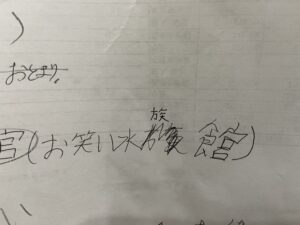 )
おとまり。
(お笑い水族館)